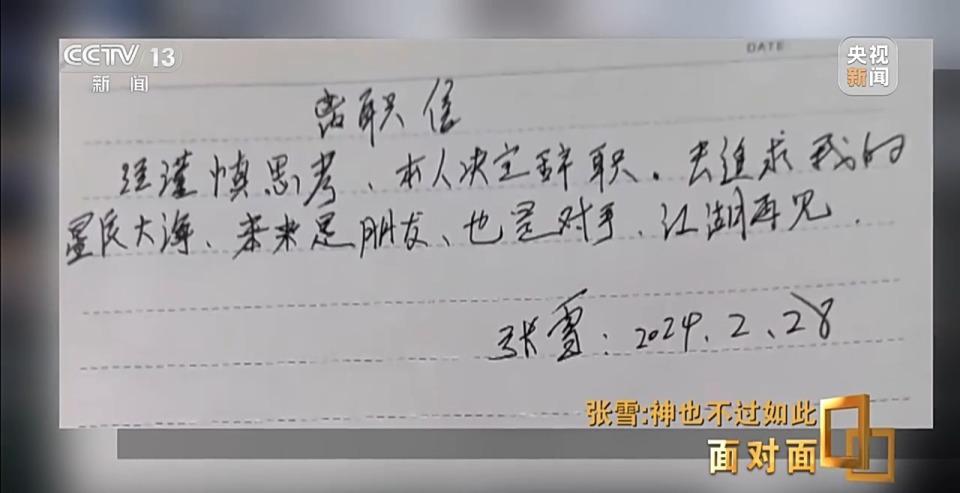 CCTV 13
新闻
央视
新闻
DATE
离职信
经谨慎思考、本人决定辞职。去追求我的
星辰大海、未来是朋友、也是对手、江湖再见.
张雪: 2024.2.28
张雪:神也不过如此
面对面